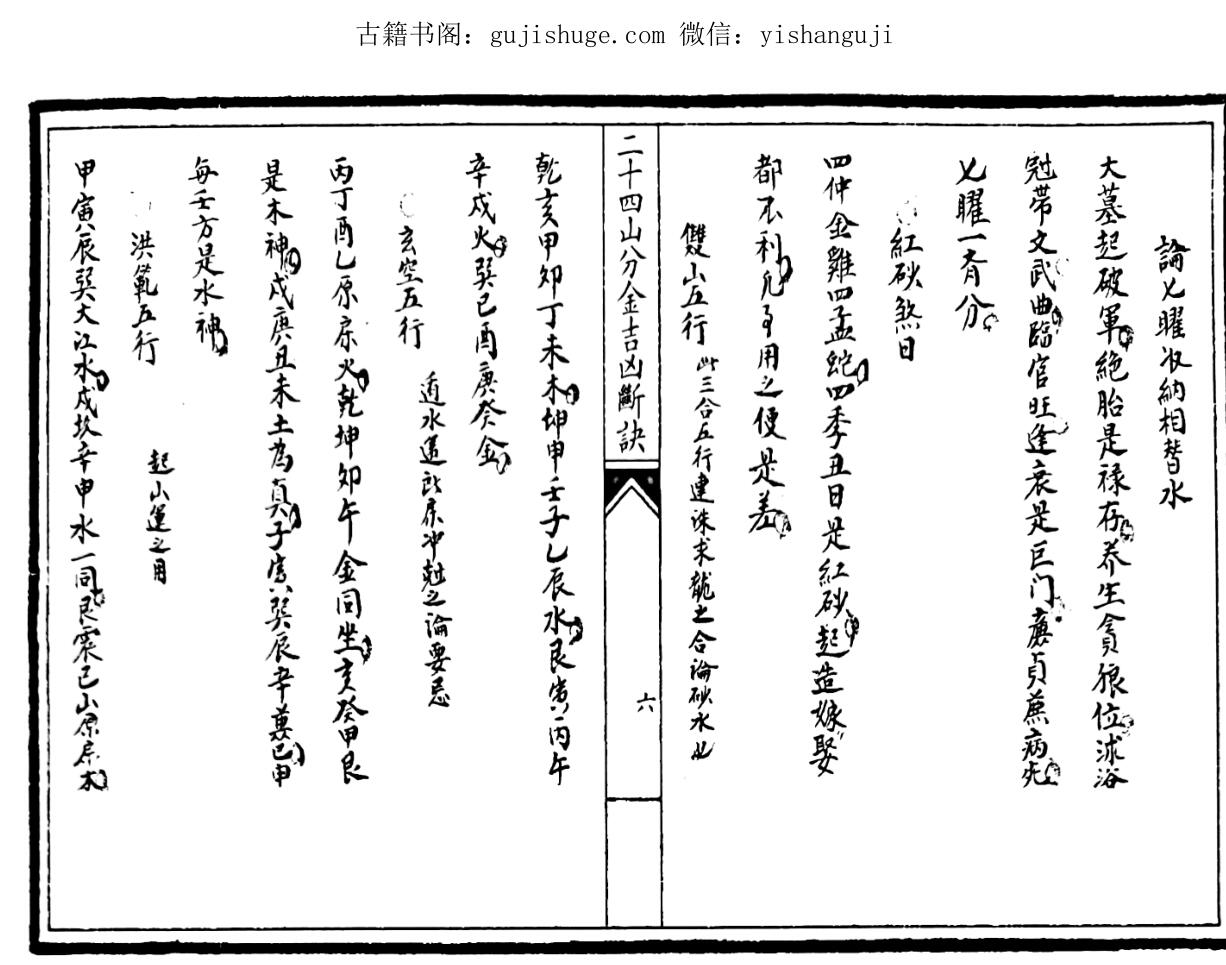 古籍书阁：gujishuge.com 微信：yishanguji
論七曜收納相替水
大墓起破軍絕胎是禄存养生貪狼位沭浴
冠帶文武曲臨官旺逢衰是巨门廉貞蕪病死
七曜一斉分
紅砂煞日
四仲金雞四孟蛇四季丑日是紅砂起造嫁娶
都不利凡事用之便是差
雙山五行 此三合五行連珠求龍之合論砂水也
二十四山分金吉凶斷訣
六
乾亥甲卯丁未木坤申壬子乙辰水艮寅丙午
辛戌火巽巳酉庚癸金
玄空五行 水運 冲尅之論要忌
丙丁酉乙原屬火乾坤卯午金同坐亥癸甲艮
是木神戌庚丑未土為真子寅巽辰辛萛巳申
每壬方是水神
洪範五行 起山運之用
甲寅辰巽大江水戌坎辛申水一同艮震巳山原屬木